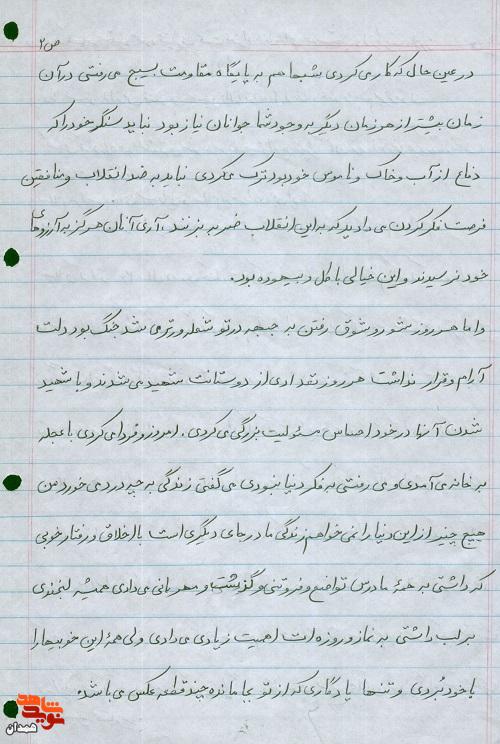 ص ۲
در عین حال که کار می کردی شبها هم به پایگاه مقاومت بسیج می رفتی در آن
زمان بیشتر از هر زمان دیگر به وجود شما جوانان نیاز بود نباید سنگر خود را که
دفاع از آب و خاک و ناموس خود بود ترک می کردی نباید به ضد انقلاب و منافقین
فرصت فکر کردن می دادید که به این انقلاب ضربه بزنند ، آری آنان هرگز به آرزوهای
خود نرسیدند و این خیالی باطل و بیهوده بود.
و اما هر روز شور و شوق رفتن به جبهه در تو شعله ور تر می شد جنگ بود دلت
آرام و قرار نداشت هر روز تعدادی از دوستانت شهید می شدند و با شهید
شدن آنها در خود احساس مسئولیت بزرگی می کردی . امروز و فردا می کردی با عجله
به خانه می آمدی و می رفتی به فکر دنیا نبودی می گفتی زندگی به چه درد می خورد من
هیچ چیز از این دنیا را نمی خواهم زندگی ما در جای دیگری است با اخلاق و رفتار خوبی
که داشتی به همهٔ ما درس تواضع و فروتنی و گذشت و مهربانی می دادی همیشه لبخندی
بر لب داشتی به نماز و روزه ات اهمیت زیادی می دادی ولی همهٔ این خوبیها را
با خود بُردی و تنها یادگاری که از تو بجا مانده چند قطعه عکس می باشد.
نوید شاهد
همدان